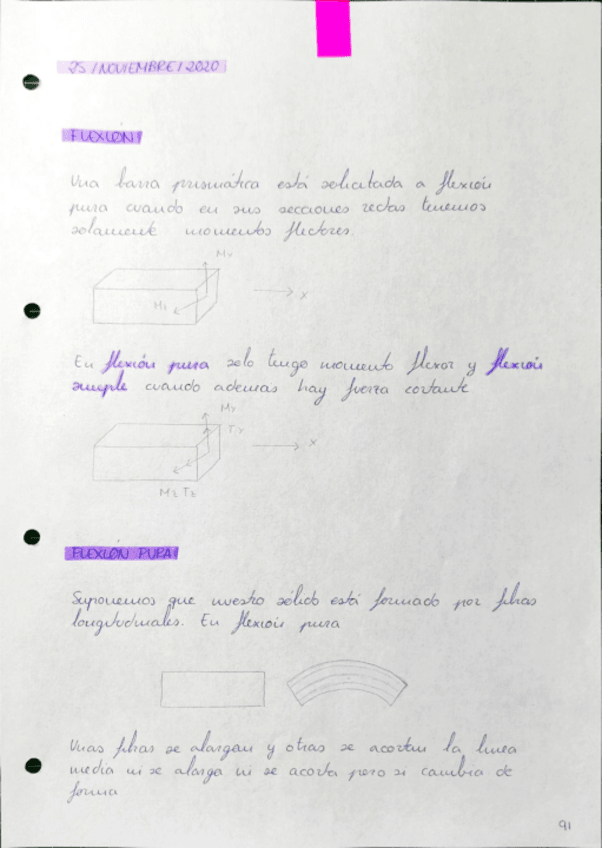 25/NOVIEMBRE/2020
FLEXIÓN
Una barra prismática está solicitada a flexión
pura cuando en sus secciones rectas tenemos
solamente momentos flectores.
My
Mz
x
En flexión pura solo tengo momento flexor y flexión
simple cuando además hay fuerza cortante
My
Ty
x
Mz Tz
FLEXIÓN PURA
Suponemos que nuestro sólido está formado por fibras
longitudinales. En flexión pura
Unas fibras se alargan y otras se acortan la linea
media ni se alarga ni se acorta pero si cambia de
forma
91